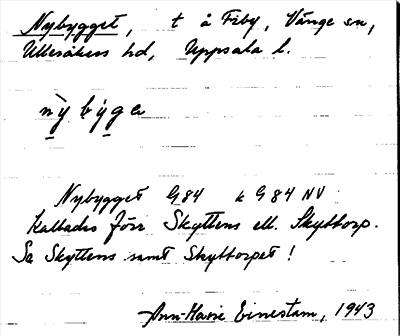 Nybygget, t å Fiby, Vänge sn,
Ulleråkers hd, Uppsala l.
nỳ býge
Nybygget G84 k G84 NV
Kallades förr Skyttens ell. Skyttorp.
Se Skyttens samt Skyttorpet!
Ann-Marie Einestam, 1943